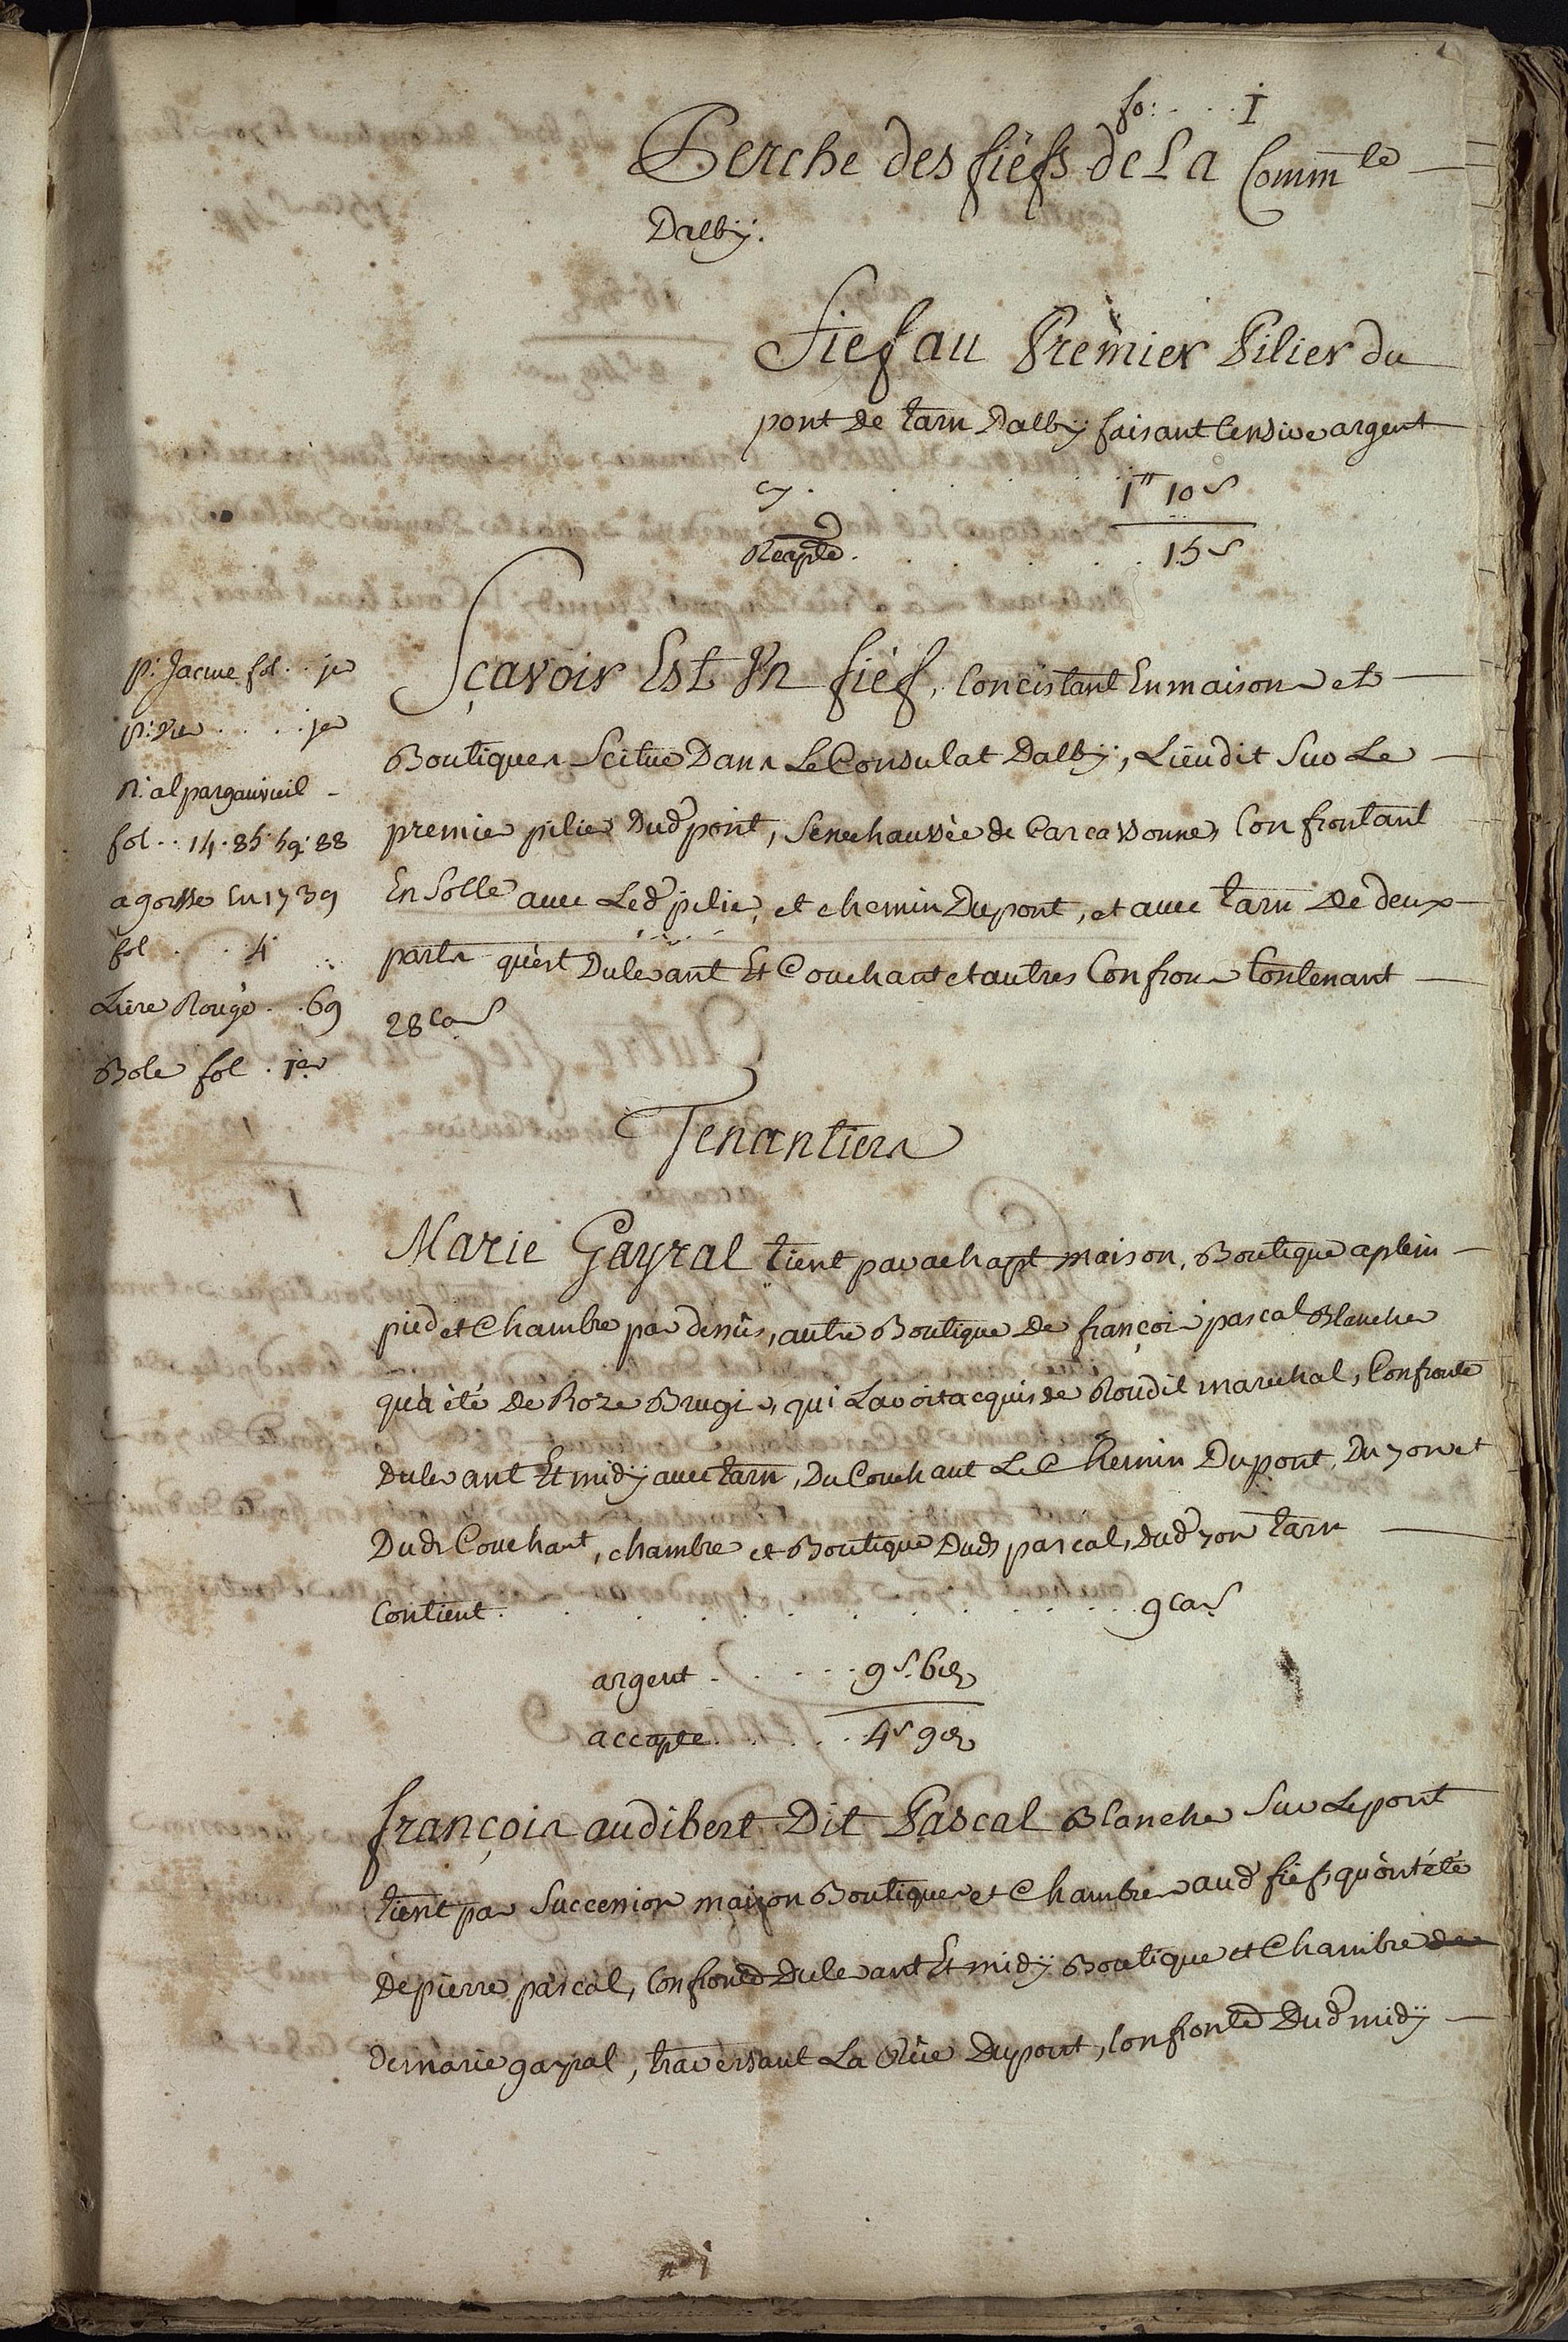 fo: . . . 1
Perche des fiéfs de La Comm^le
Dalby.
Fief au Premier Pilier du
pont de tarn Dalby faisant Censive argent
cy . . . . 1^tt 10^s
Reapte . . . . 15^s
p: Jacme fol . . je
p: vie . . . . je
n: al pargauvieil
fol . . 14 . 85 . 59 . 88
a gorsse En 1739
fol . . . 4
Liève Rouge . . 69
Bole fol . 1er
Sçavoir Est Vn fiéf, Concistant En maison et
Boutiques Scitué Dans Le Consulat Dalby, Lieudit Sur Le
premier pilier Dud pont, Senechaussée de Carcassonne, Confrontant
En Solle avec Led pilier, et chemin Du pont, et avec tarn De deux
parts qu'est Dulevant Et Couchant et autres Confrons Contenant
28 Cas
Tenantiers
Marie Gayral tient par achapt maison, Boutique a plein
pied et Chambre par dessus, autre Boutique De françois pascal Blancher
qu'a été De Roze Brugie, qui Lavoit acquis de Roudil marechal, Confronte
Dulevant Et midy avec tarn, Du Couchant Le Chemin Dupont, Du 7on et
Dud Couchant, chambre et Boutique Dud pascal, Dud 7on tarn
Contient . . . . 9 Cas
argent . . . . 9^s. 6d
accapte . . . . 4^s 9d
françois audibert Dit Pascal Blancher Sur Le pont
tient par Succession maizon Boutiques et Chambres aud fief, qu'ont été
De pierre pascal, Confronte Dulevant Et midy Boutique et Chambre de
de marie gayral, traversant La Rüe Dupont, Confronte Dud midy